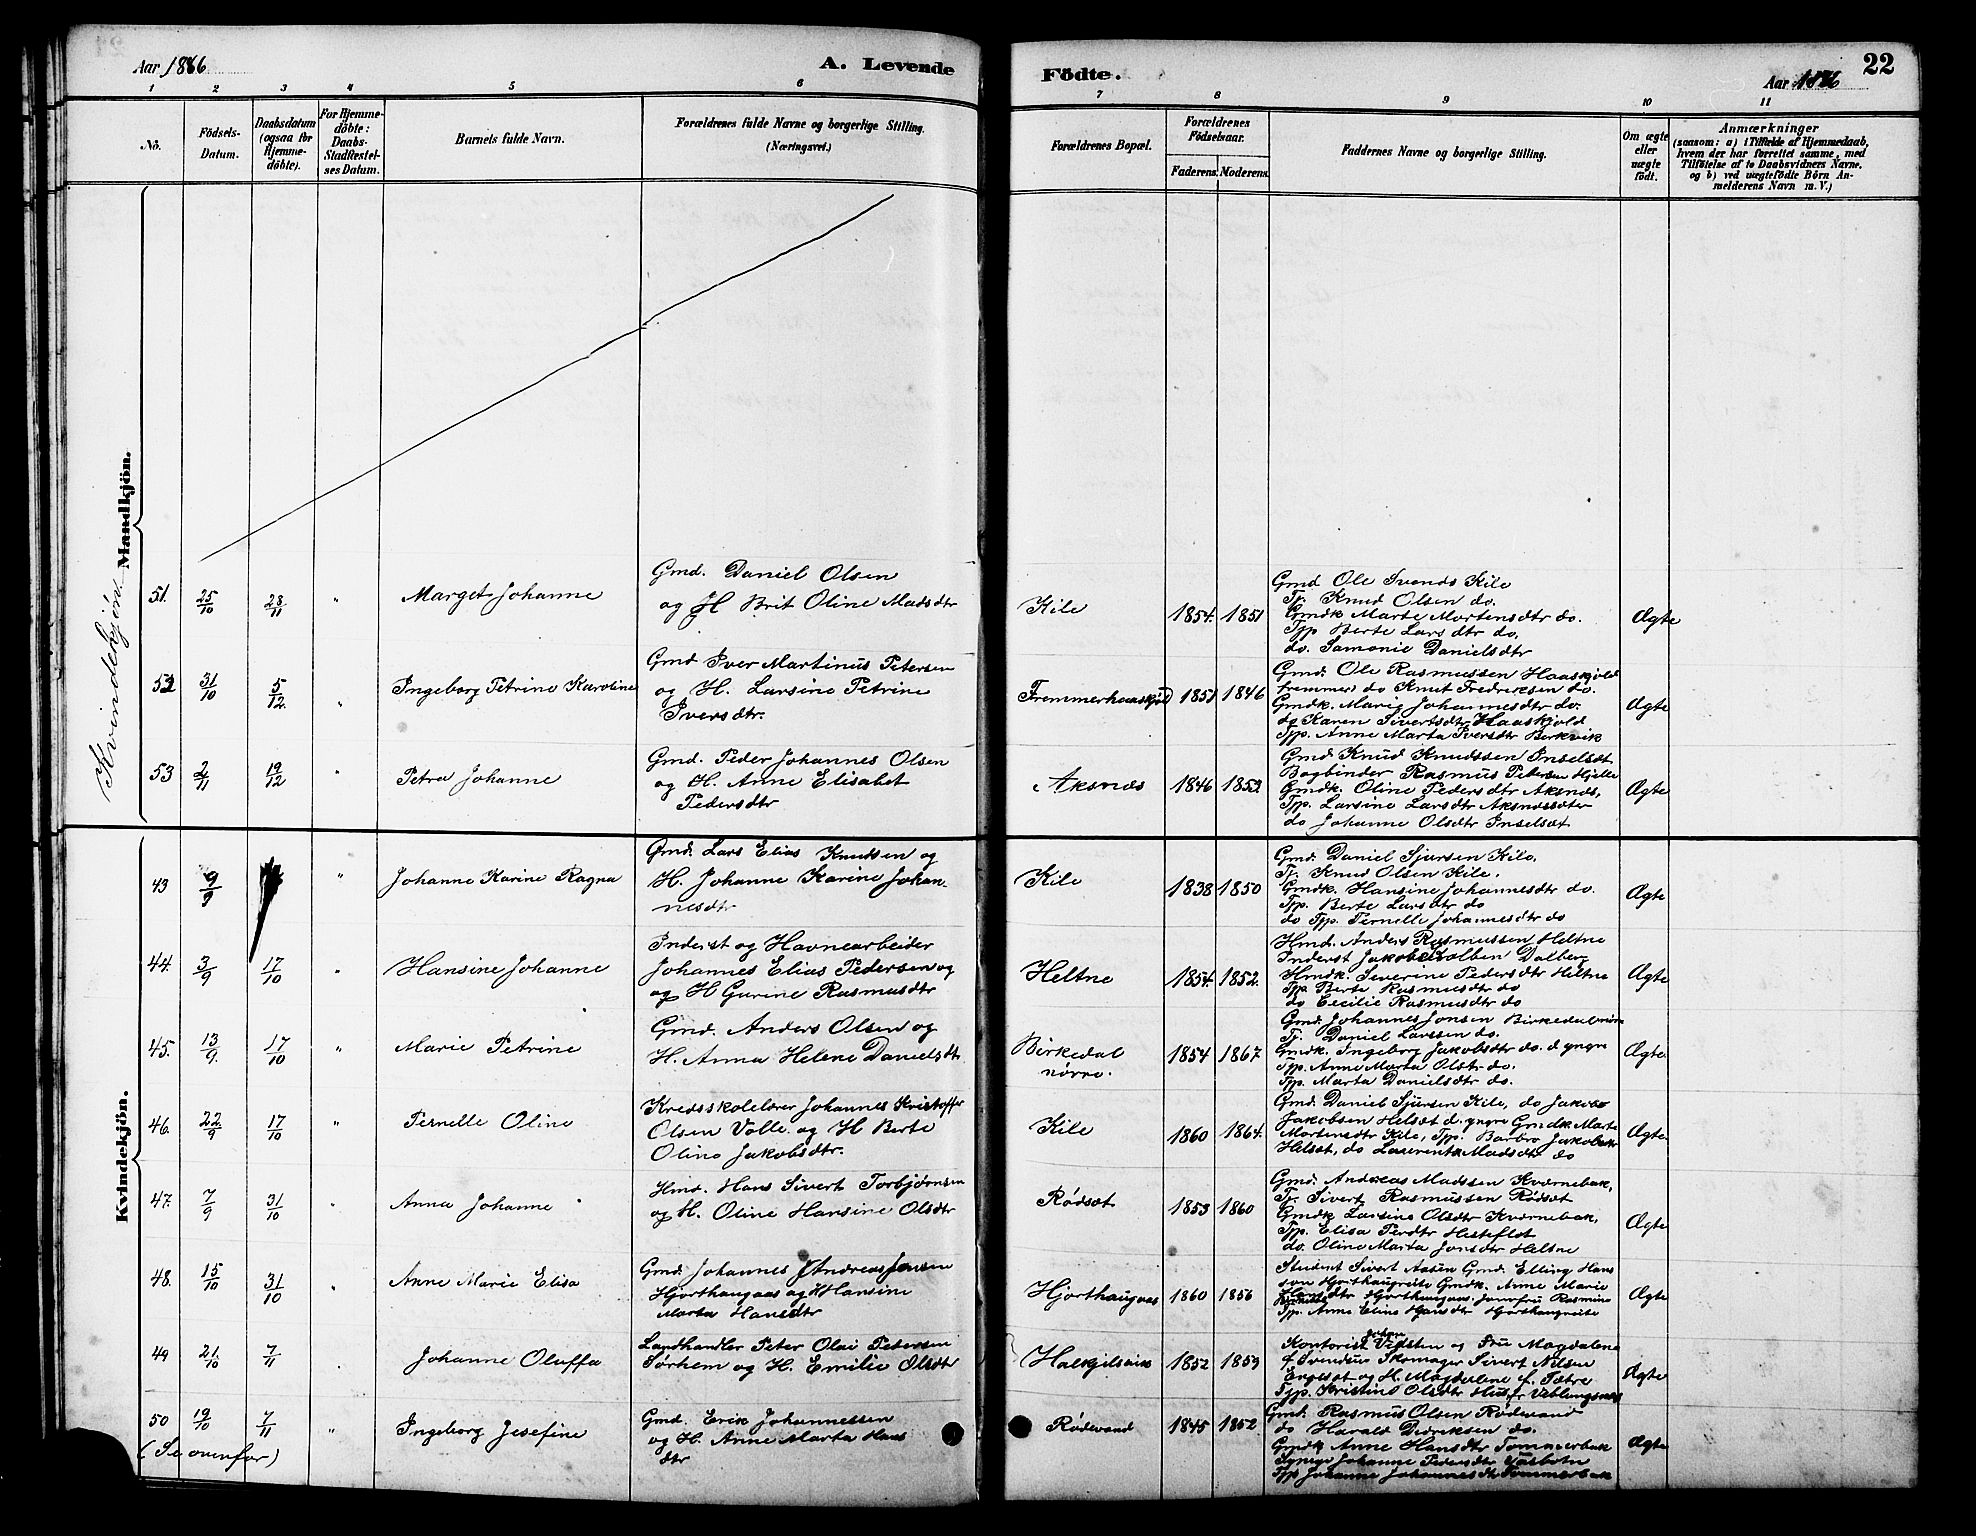 Aar 1886
A. Levende
Födte.
Aar 1886
22
1 2 3 4 5 6 7 8 9 10 11
No.
Födsels-
Datum.
Daabsdatum
(ogsaa for
Hjemme-
döbte).
For Hjemme-
döbte:
Daabs-
Stadfæstel-
ses Datum.
Barnets fulde Navn.
Forældrenes fulde Navne og borgerlige Stilling.
(Næringsvei.)
Forældrenes Bopæl.
Forældrenes
Födselsaar.
Faderens. Moderens.
Faddernes Navne og borgerlige Stilling.
Om ægte
eller
uægte
födt.
Anmærkninger
(saasom: a) i Tilfælde af Hjemmedaab,
hvem der har forrettet samme, med
Tilföielse af to Daabsvidners Navne.
og b) ved uægtefödte Börn An-
melderens Navn m. V.)
Mandkjön.
Kvindekjön
51. 25/10 28/11 " Marget Johanne
Gmd. Daniel Olsen
og H Brit Oline Madsdtr
Kile 1854. 1851
Gmd Ole Svends Kile
Tj. Knud Olsen do.
Gmdk Marte Mortensdtr do.
Tjp Berte Larsdtr do.
do. Samonie Danielsdtr
Ægte
52 31/10 5/12. " Ingeborg Petrine Karoline
Gmd Iver Martinus Petersen
og H. Larsine Petrine
Iversdtr.
Fremmerhaaskjold 1851 1846
Gmd. Ole Rasmussen Haaskjold
fremmer, do Knut Fredriksen do.
Gmdk. Marie Johannesdtr do.
do Karen Sivertsdtr Haaskjold
Tjp. Anne Marta Iversdtr Berkvik
Ægte
53 2/11 19/12 " Petra Johanne
Gmd. Peder Johannes Olsen
og H. Anne Elisabet
Pedersdtr
Aksnæs 1846 1852
Gmd Knud Knudssen Inselsæt
Bogbinder Rasmus Petersen Hjelle
Gmdk. Oline Pedersdtr Aksnæs,
Tjp. Larsine Larsdtr Aksnæssæter
do Johanne Olsdtr Inselsæt
Ægte
Kvindekjön.
43 9/9 " Johanne Karine Ragna
Gmd. Lars Elias Knudsen og
H. Johanne Karine Johan-
nesdtr
Kile 1838 1850
Gmd. Daniel Sjursen Kile.
Tj. Knud Olsen Kile.
Gmdk. Hansine Johannesdtr do.
Tjp. Berte Larsdtr do
do Tjp. Pernelle Johannesdtr do
Ægte
44. 3/9 17/10 " Hansine Johanne
Inderst og Havnearbeider
Johannes Elias Pedersen og
og H Gurine Rasmusdtr
Heltne 1854. 1852.
Hmd. Anders Rasmussen Heltne
Inderst Jakob Kolben Dalberg
Hmdk. Severine Pedersdtr Heltne
Tjp Berte Rasmusdtr do
do Cecilie Rasmusdtr do
Ægte
45. 13/9. 17/10 " Marie Petrine
Gmd. Anders Olsen og
H. Anna Helene Danielsdtr
Birkedal
nörre. 1854 1867.
Gmd. Johannes Jonsen Birkedalnörre
Tj. Daniel Larssen do.
Gmdk. Ingeborg Jakobsdtr do. d yngre
Tjp. Anne Marta Olsdtr do.
Tjp. Marta Danielsdtr do.
Ægte.
46. 22/9 17/10 " Pernelle Oline
Kredsskolelærer Johannes Kristoffer
Olsen Volle og H Berte
Oline Jakobsdtr.
Kile 1860 1864.
Gmd. Daniel Sjursen Kile, do Jakob
Jakobsen Helsæt d. yngre Gmdk Marte
Mortensdtr Kile, Tjp. Barbro Jakobsdtr
Helsæt, do Laurentse Madsdtr do
Ægte.
47. 7/9 31/10 " Anna Johanne
Hmd. Hans Sivert Torbjørnsen
og H. Oline Hansine Olsdtr
Rödsæt 1853 1860
Gmd. Andreas Madssen Kværnebak,
Tj. Sivert Rasmussen Rödsæt
Gmdk Larsine Olsdtr Kværnebak,
Tjp. Elisa Perdtr Hesteflot
do. Oline Marta Jonsdtr Heltne
Ægte
48. 15/10 31/10 " Anne Marie Elisa
Gmd. Johannes Andreas Jonsen
Hjorthaugaas og H Hansine
Marta Hansdtr
Hjorthaugaas 1860 1856
Student Sivert Aasen Gmd. Elling Hans
son Hjorthaugreite Gmdk. Anne Marie
Hansdtr Hjorthaugaas, Jomfru Rasmine
Tjp. Anne Eline Hansdtr Hjorthaugreite
Ægte
49 21/10 7/11 " Johanne Oluffa
Landhandler Peter Olai Petersen
Sørhem og H. Emilie Olsdtr
Halkjilsvik 1852 1859
Kontorist Johan Vedsten og Fru Magdalena
f Svendsen Skomager Sivert Nilsen
Engesæt og H. Magdalene f. Sætre
Tjp. Kristine Olsdtr Husfr Veblungsnæs
Ægte
50 19/10 7/11 " Ingeborg Josefine
Gmd. Erik Johannessen
og H. Anne Marta Hans
dtr
Rödevand 1845 1852
Gmd. Rasmus Olsen Rödevand
do Harald Didriksen do.
Gmdk Anne Hansdtr Tommerbak
Sypige Johanne Pedersdtr Vasbotn
Tjp Johanne Johannesdtr Tommerbak
Ægte
(Se ovenfor)